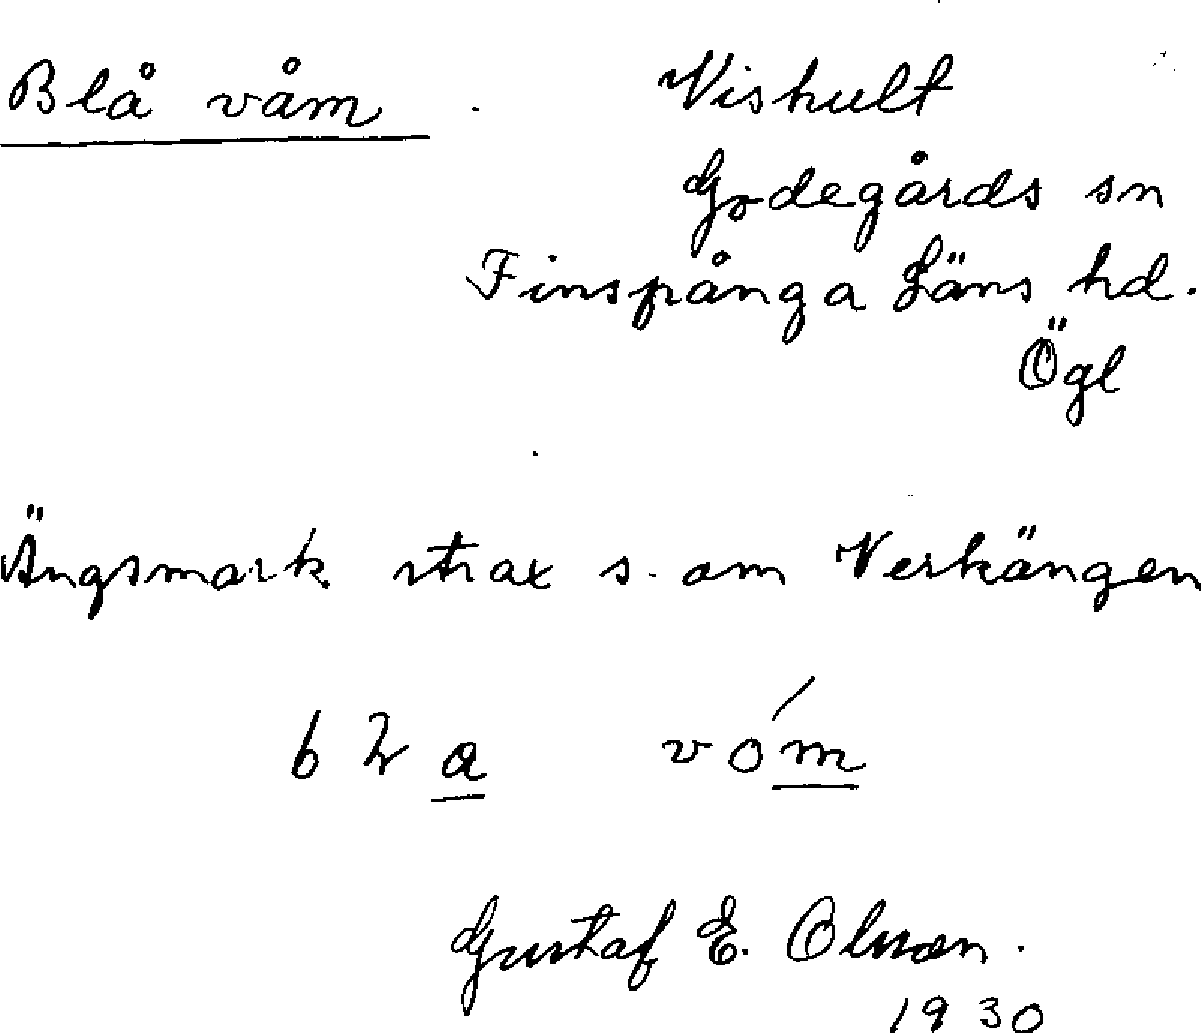 Blå våm Vishult
Godegårds sn
Finspånga Läns hd.
Ögl
Ängsmark strax s. om Verkängen
vóm
Gustaf E. Olsson.
1930